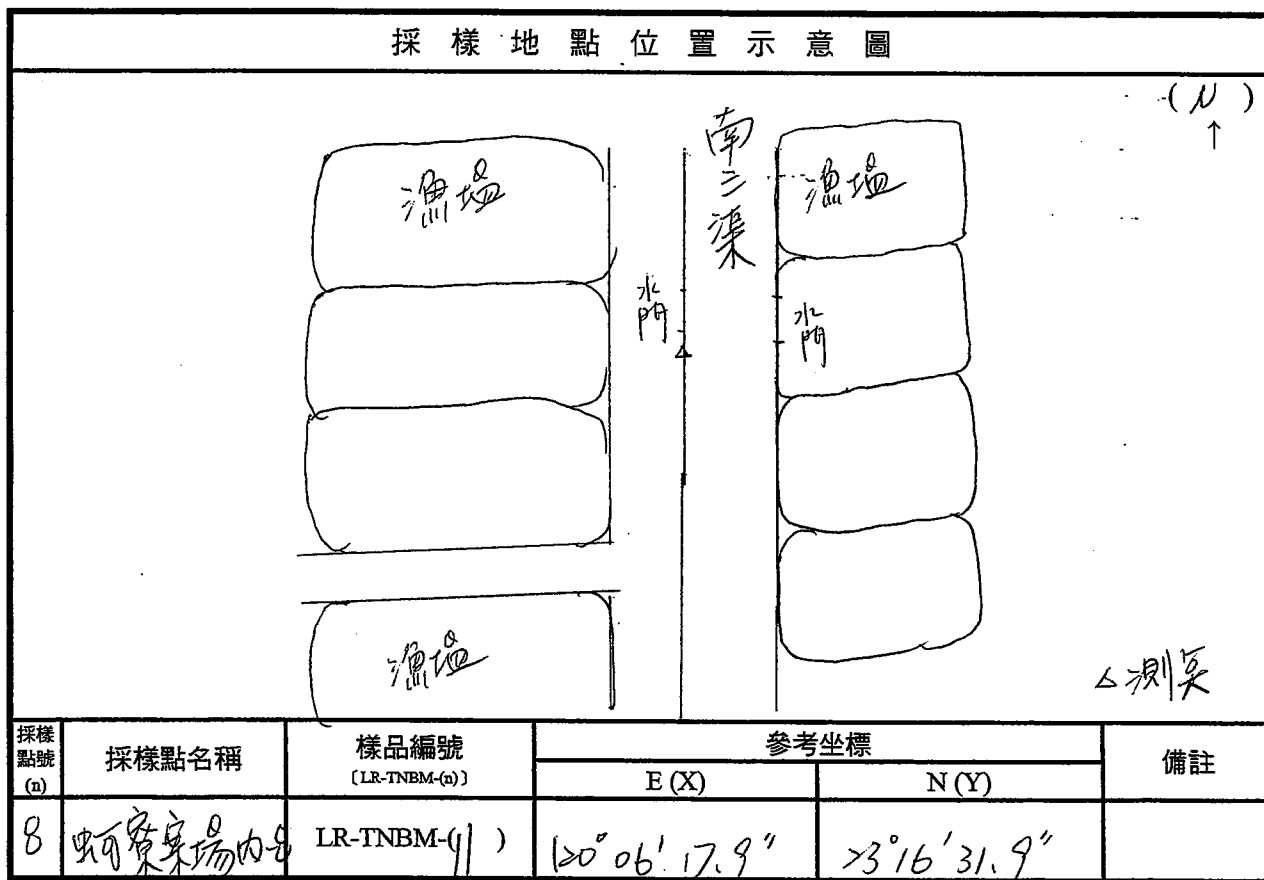 採樣地點位置示意圖
(N)
↑
漁塭
南三渠
漁塭
水門
水門
漁塭
△測点
採樣點號(n)
採樣點名稱
樣品編號
〔LR-TNBM-(n)〕
參考坐標
E (X)
N (Y)
備註
8
蚵寮案場內
LR-TNBM-(11)
120° 06' 17.9"
23° 16' 31.9"